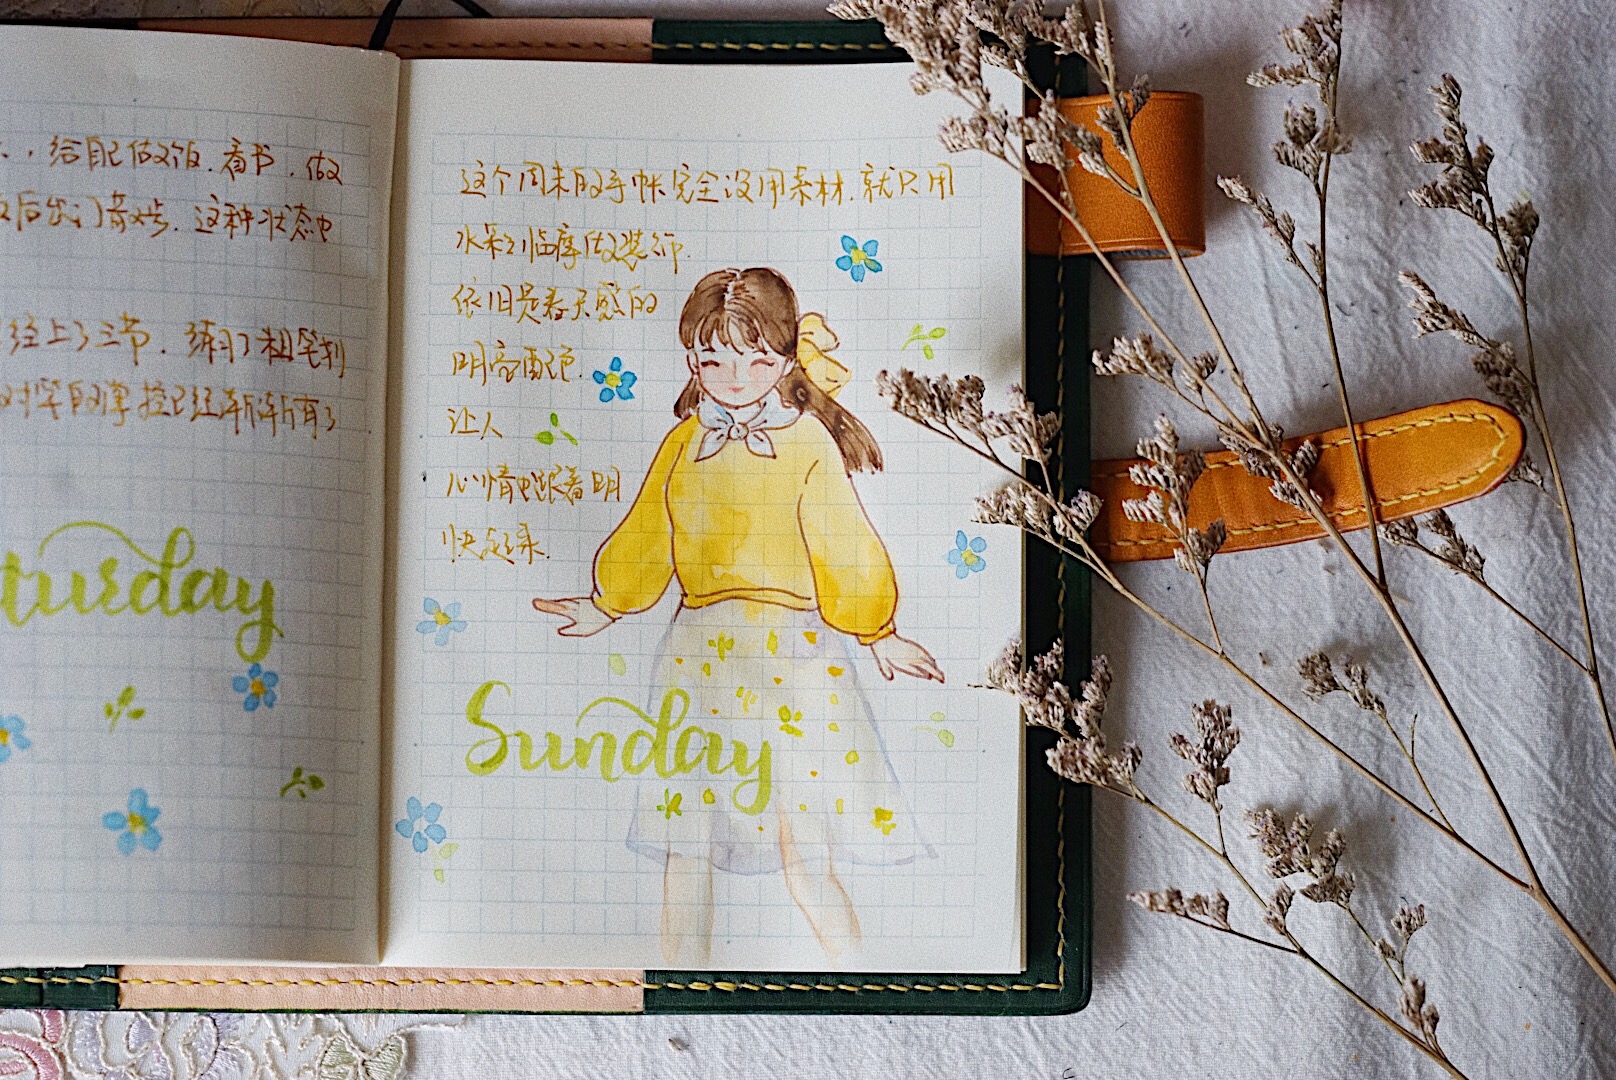 ，给自己做个饭．看书．做
后出门散步．这种状态也
经上了三节．练习了粗笔划
对笔的掌控已经渐渐有了
turday
这个周末的手帐完全没用素材．就只用
水彩临摹做装饰．
依旧是春天感的
明亮配色．
让人
心情也跟着明
快起来．
Sunday